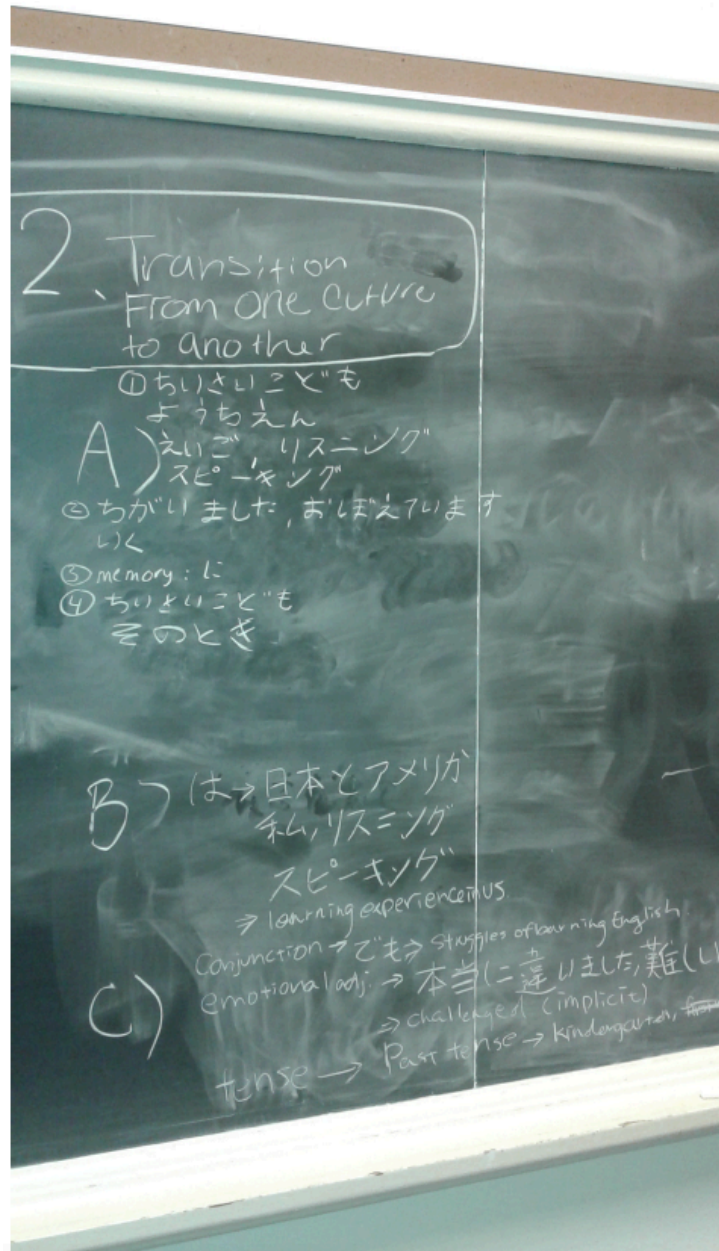 2. Transition
From one Cuture
to another
① ちいさいこども
ようちえん
A) えいご, リスニング
スピーキング
② ちがいました, おぼえています
いく
③ memory: に
④ ちいさいこども
そのとき
B) は→日本とアメリカ
私, リスニング
スピーキング
⇒ learning experience in US
Conjunction → でも ⇒ struggles of learning English
emotional adj. → 本当に違いました, 難しい
C) ⇒ challenged (implicit)
tense → Past tense → Kindergarten,